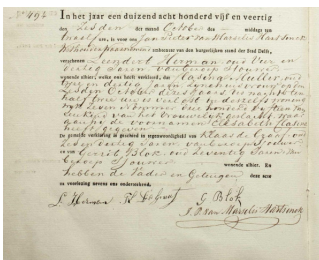 N.o 494
In het jaar een duizend acht honderd vijf en veertig
den Zesden der maand October des middags ten
twaalf ure, is voor ons Jan Pieter van Marselis Hartsinck
Wethouder ambtenaar van den burgerlijken stand der Stad Delft,
verschenen Leendert Herman, oud Vier en
dertig Jaren, van beroep Sjouwer
wonende alhier, welke ons heeft verklaard, dat Maschia Muller, oud
dertig Jaren, zijne huisvrouw, op den
Zesden October dezes Jaars des nachts ten
half twee ure is verlost in derzelver woning
van een kind van het vrouwelijk geslacht, waar
aan hij de voornamen Elisabeth
heeft gegeven
De gemelde verklaring is geschied in tegenwoordigheid van Klaas de Graaf, oud
Zes en dertig Jaren, van beroep Sjouwer
en van Gerrit Blok, oud Zeventig Jaren, van
beroep Sjouwer wonende alhier. En
hebben de Vader en Getuigen deze acte
na voorlezing nevens ons onderteekend.
L. Herman K. de Graaf G. Blok
J. P. van Marselis Hartsinck